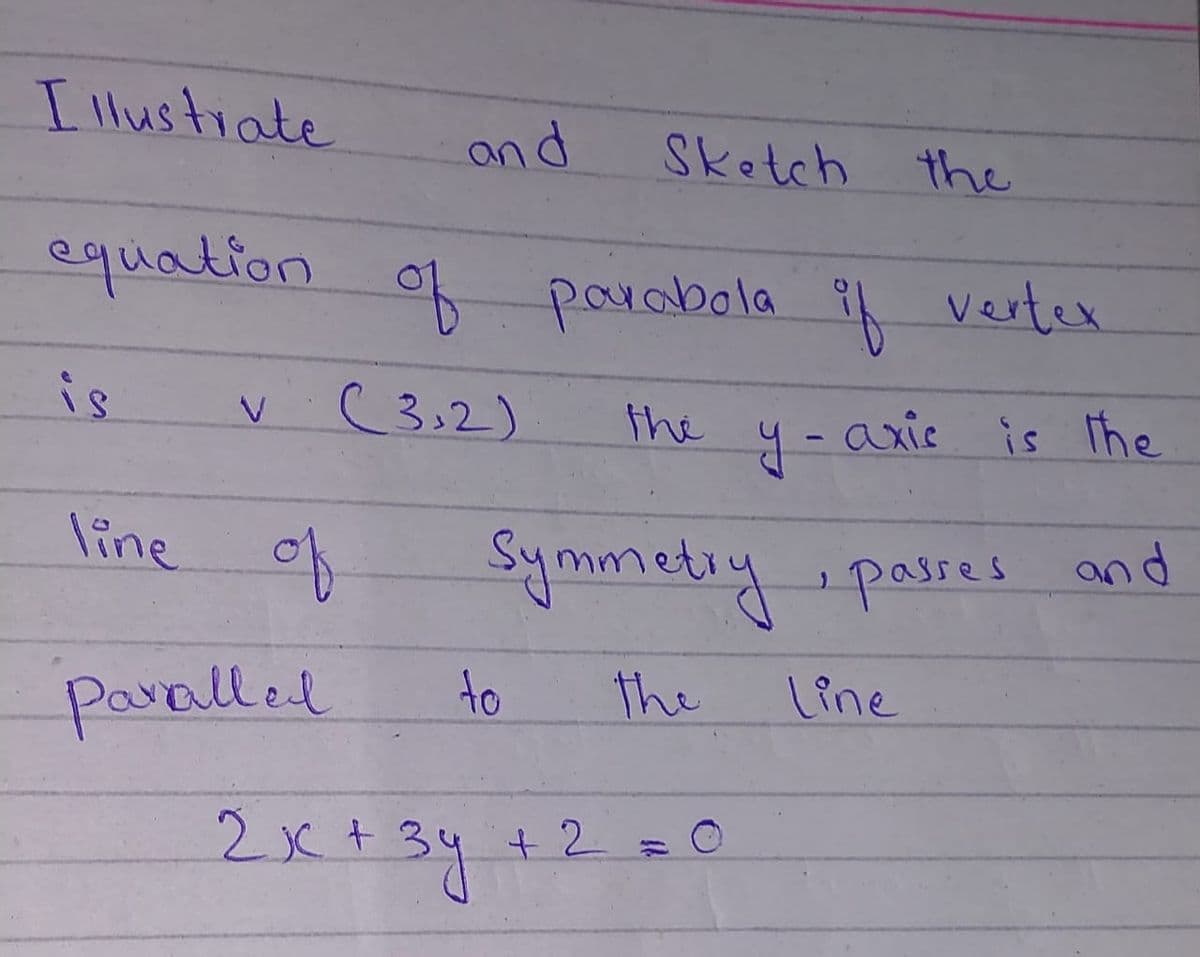 Illustrate and Sketch the
equation of parabola if vertex
is v (3,2) the y-axis is the
line of Symmetry, passes and
parallel to the line
2x + 3y + 2 = 0